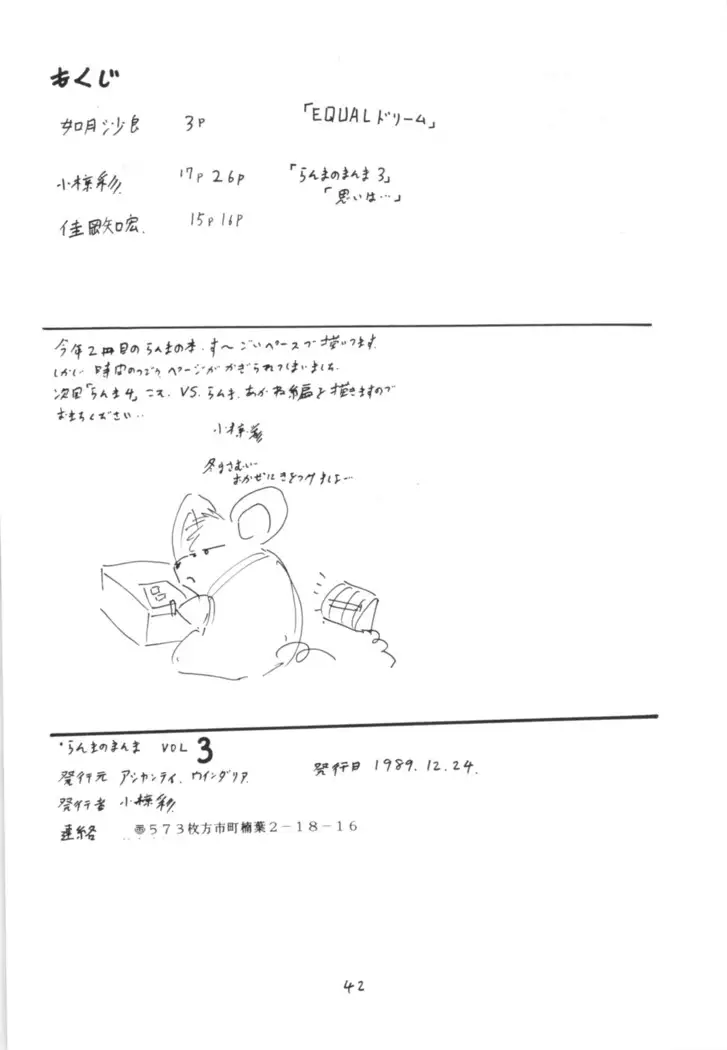 もくじ
如月沙良 3P 「EQUALドリーム」
小椋彩 17P 26P 「らんまのまんま3」
「思いは…」
佳岡知宏. 15P 16P
今年2冊目のらんまの本、す〜ごいペースで描いてます
しかし時間のつごう、ページがかぎられてしまいました
次回「らんま4」こそ、VS. らんま、あかね編を描きますので
おまちください…
小椋彩
冬はさむい…
おかぜにきをつけましょ…
・らんまのまんま VOL 3
発行元 アシャンティ、ウインダリア 発行日 1989.12.24.
発行者 小椋彩
連絡 〒573枚方市町楠葉2−18−16
42